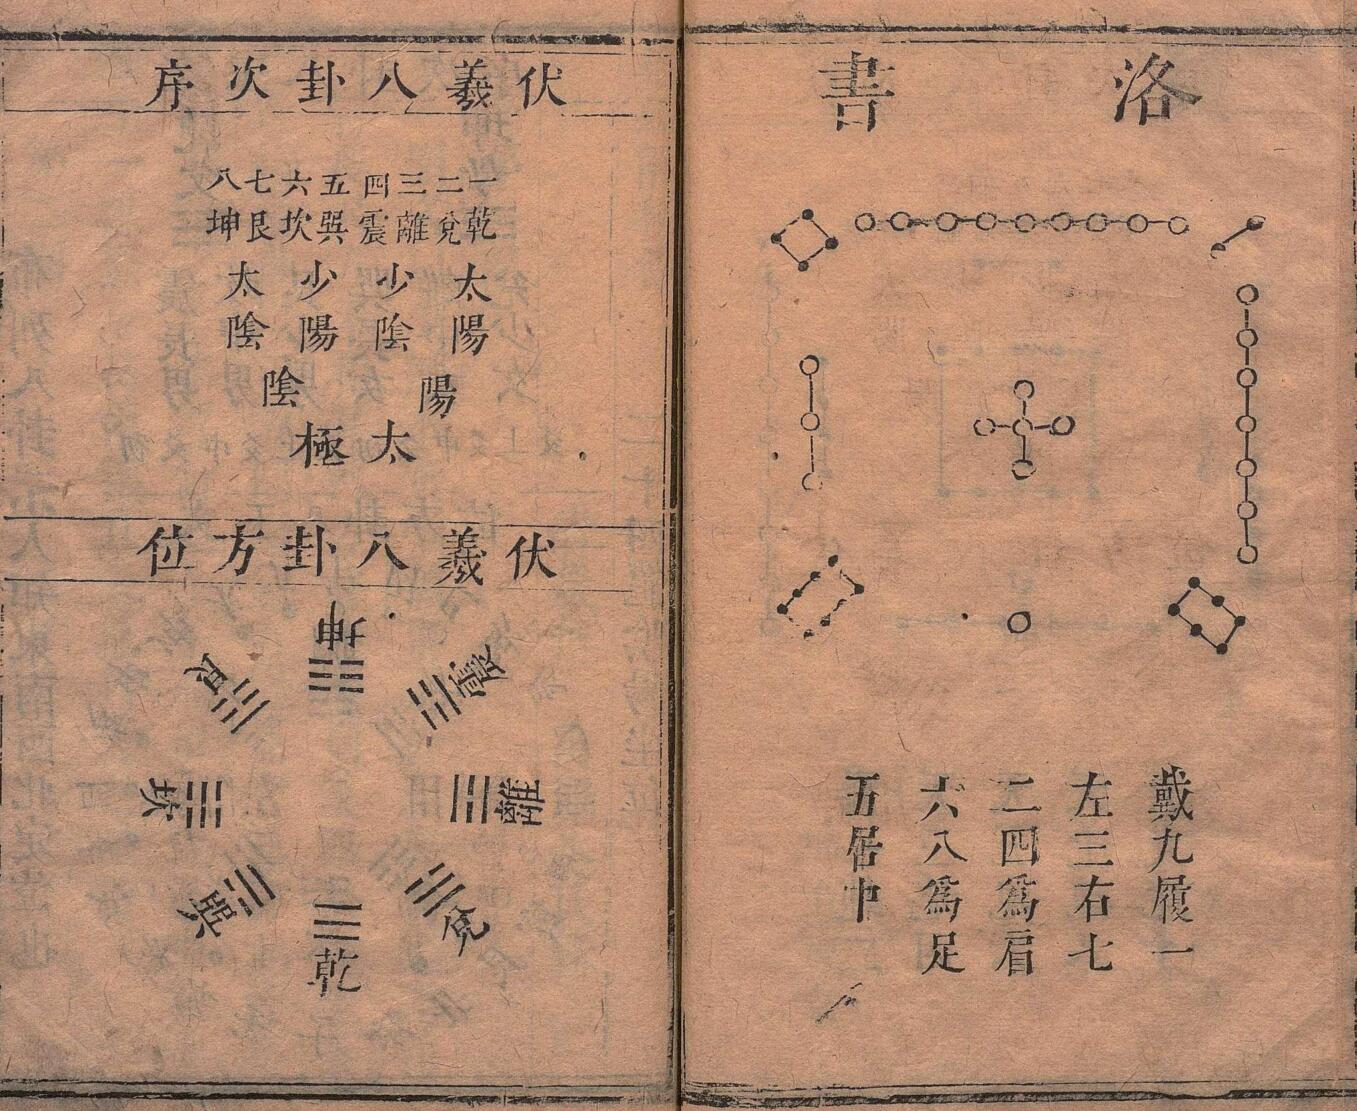 洛書
戴九履一
左三右七
二四爲肩
六八爲足
五居中
伏羲八卦次序
一乾
二兌
三離
四震
五巽
六坎
七艮
八坤
太陽
少陰
少陽
太陰
陽
陰
太極
伏羲八卦方位
坤
震
離
兌
乾
巽
坎
艮